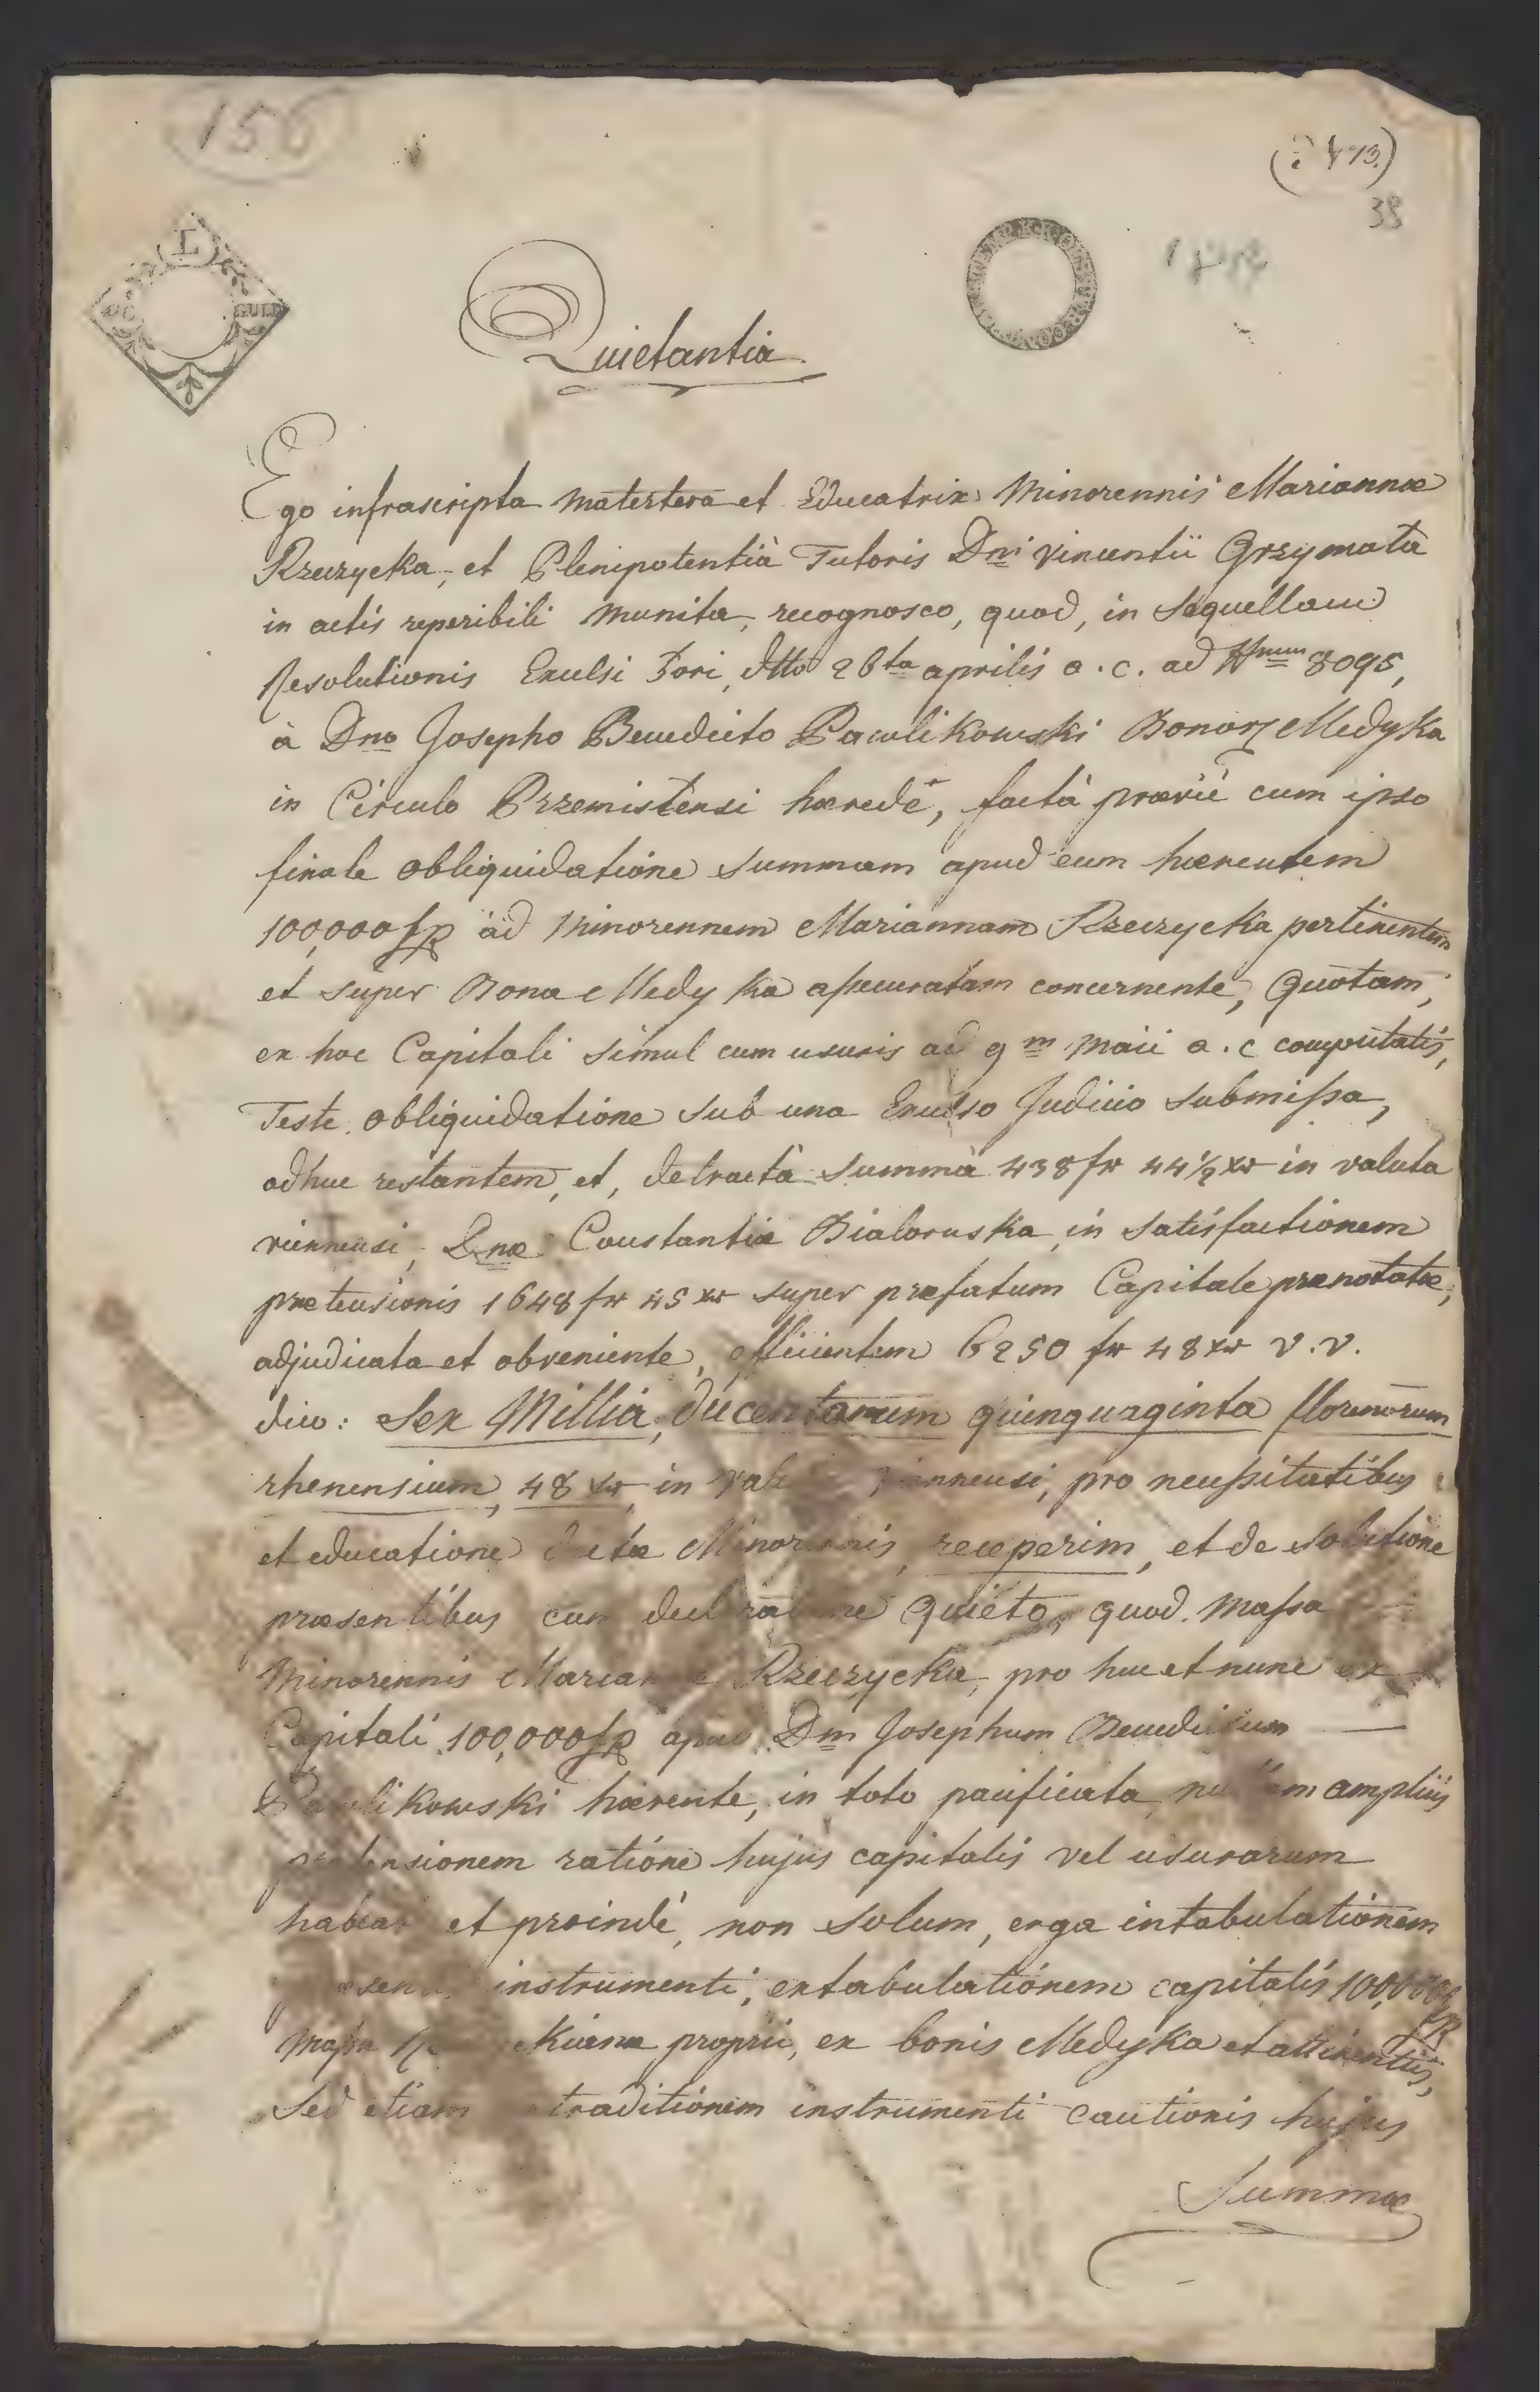 156
38
Quietantia
Ego infrascripta matertera et Educatrix Minorennis Mariannæ
Rzeczycka, et Plenipotentià Tutoris Dni Vincentii Grzymała
in actis reperibili munita, recognosco, quod, in sequellam
Resolutionis Exulsi Fori, dtto 26ta aprilis a. c. ad Nrum 8095,
à Dno Josepho Benedicto Pawlikowski Bonor Medyka
in Circulo Przemisłensi hærede, factà præviè cum ipso
finale obliquidatione summam apud eum hærentem
100,000 fp ad Minorennem Mariannam Rzeczycka pertinentem
et super Bona Medyka assecuratam concernente, Quotam,
ex hoc Capitali simul cum usuris ad 9m Maii a. c computatis,
Teste obliquidatione sub una Exulso Judicio submissa,
adhuc restantem, et, detractà summà 438 fr 44½ xr in valuta
viennensi, Dnæ Constantiæ Bialoruska in satisfactionem
prætensionis 1648 fr 45 xr super præfatum Capitale prænotatæ,
adjudicata et obveniente, efficientem 6250 fr 48 xr v. v.
dico: Sex Millia, ducentarum quinquaginta florenorum
rhenensium, 48 xr in viennensi, pro necessitatibus
et educatione dictæ Minorennis, receperim, et de solutione
præsentibus cum declaratione quieto, quod Massa
Minorennis Mariannæ Rzeczycka, pro huc et nunc ex
Capitali 100,000 fp apud Dm Josephum Benedictum
Pawlikowski hærente, in toto pacificata, nullam amplius
prætensionem ratione hujus capitalis vel usurarum
habeat et proindè, non solum, erga intabulationem
præsentis instrumenti, extabulationem capitalis 100,000 fp
Massæ proprii, ex bonis Medyka et attinentiis,
sed etiam traditionem instrumenti cautionis hujus
Summæ